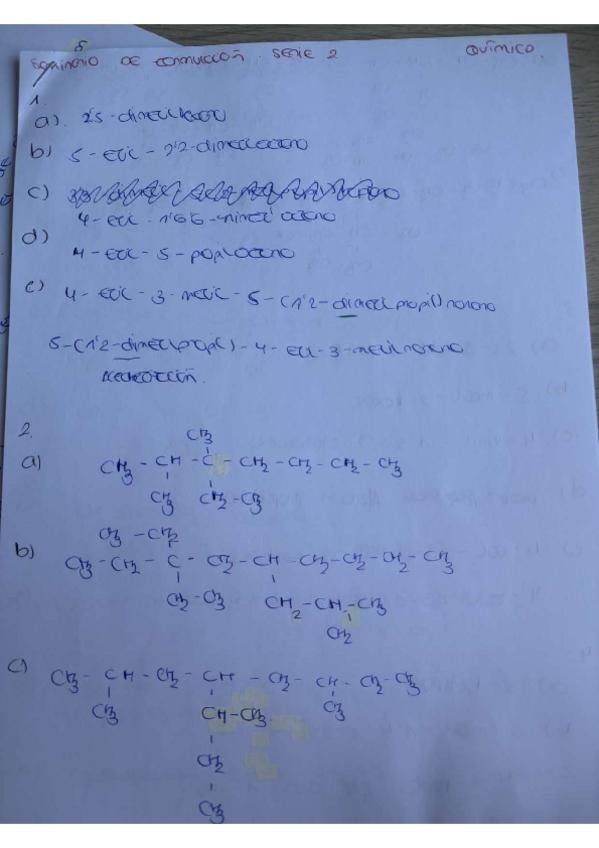 SEMINARIO DE FORMULACIÓN. SERIE 2 QUÍMICO
1.
a). 2'5-dimetilhexano
b) 5-etil-2'2-dimetiloctano
c)
4-etil-1'6'6-trimetil octano
d)
4-etil-5-propiloctano
e) 4-etil-3-metil-5-(1'2-dimetilpropil)nonano
5-(1'2-dimetilpropil)-4-etil-3-metilnonano
2.
CH3
a) CH3 - CH - C - CH2 - CH2 - CH2 - CH3
CH3 CH2 - CH3
CH3 - CH2
b) CH3 - CH2 - C - CH2 - CH - CH2 - CH2 - CH2 - CH3
CH2 - CH3 CH2 - CH - CH3
CH2
c) CH3 - CH - CH2 - CH - CH2 - CH - CH2 - CH3
CH3 CH - CH3 CH3
CH2
CH3